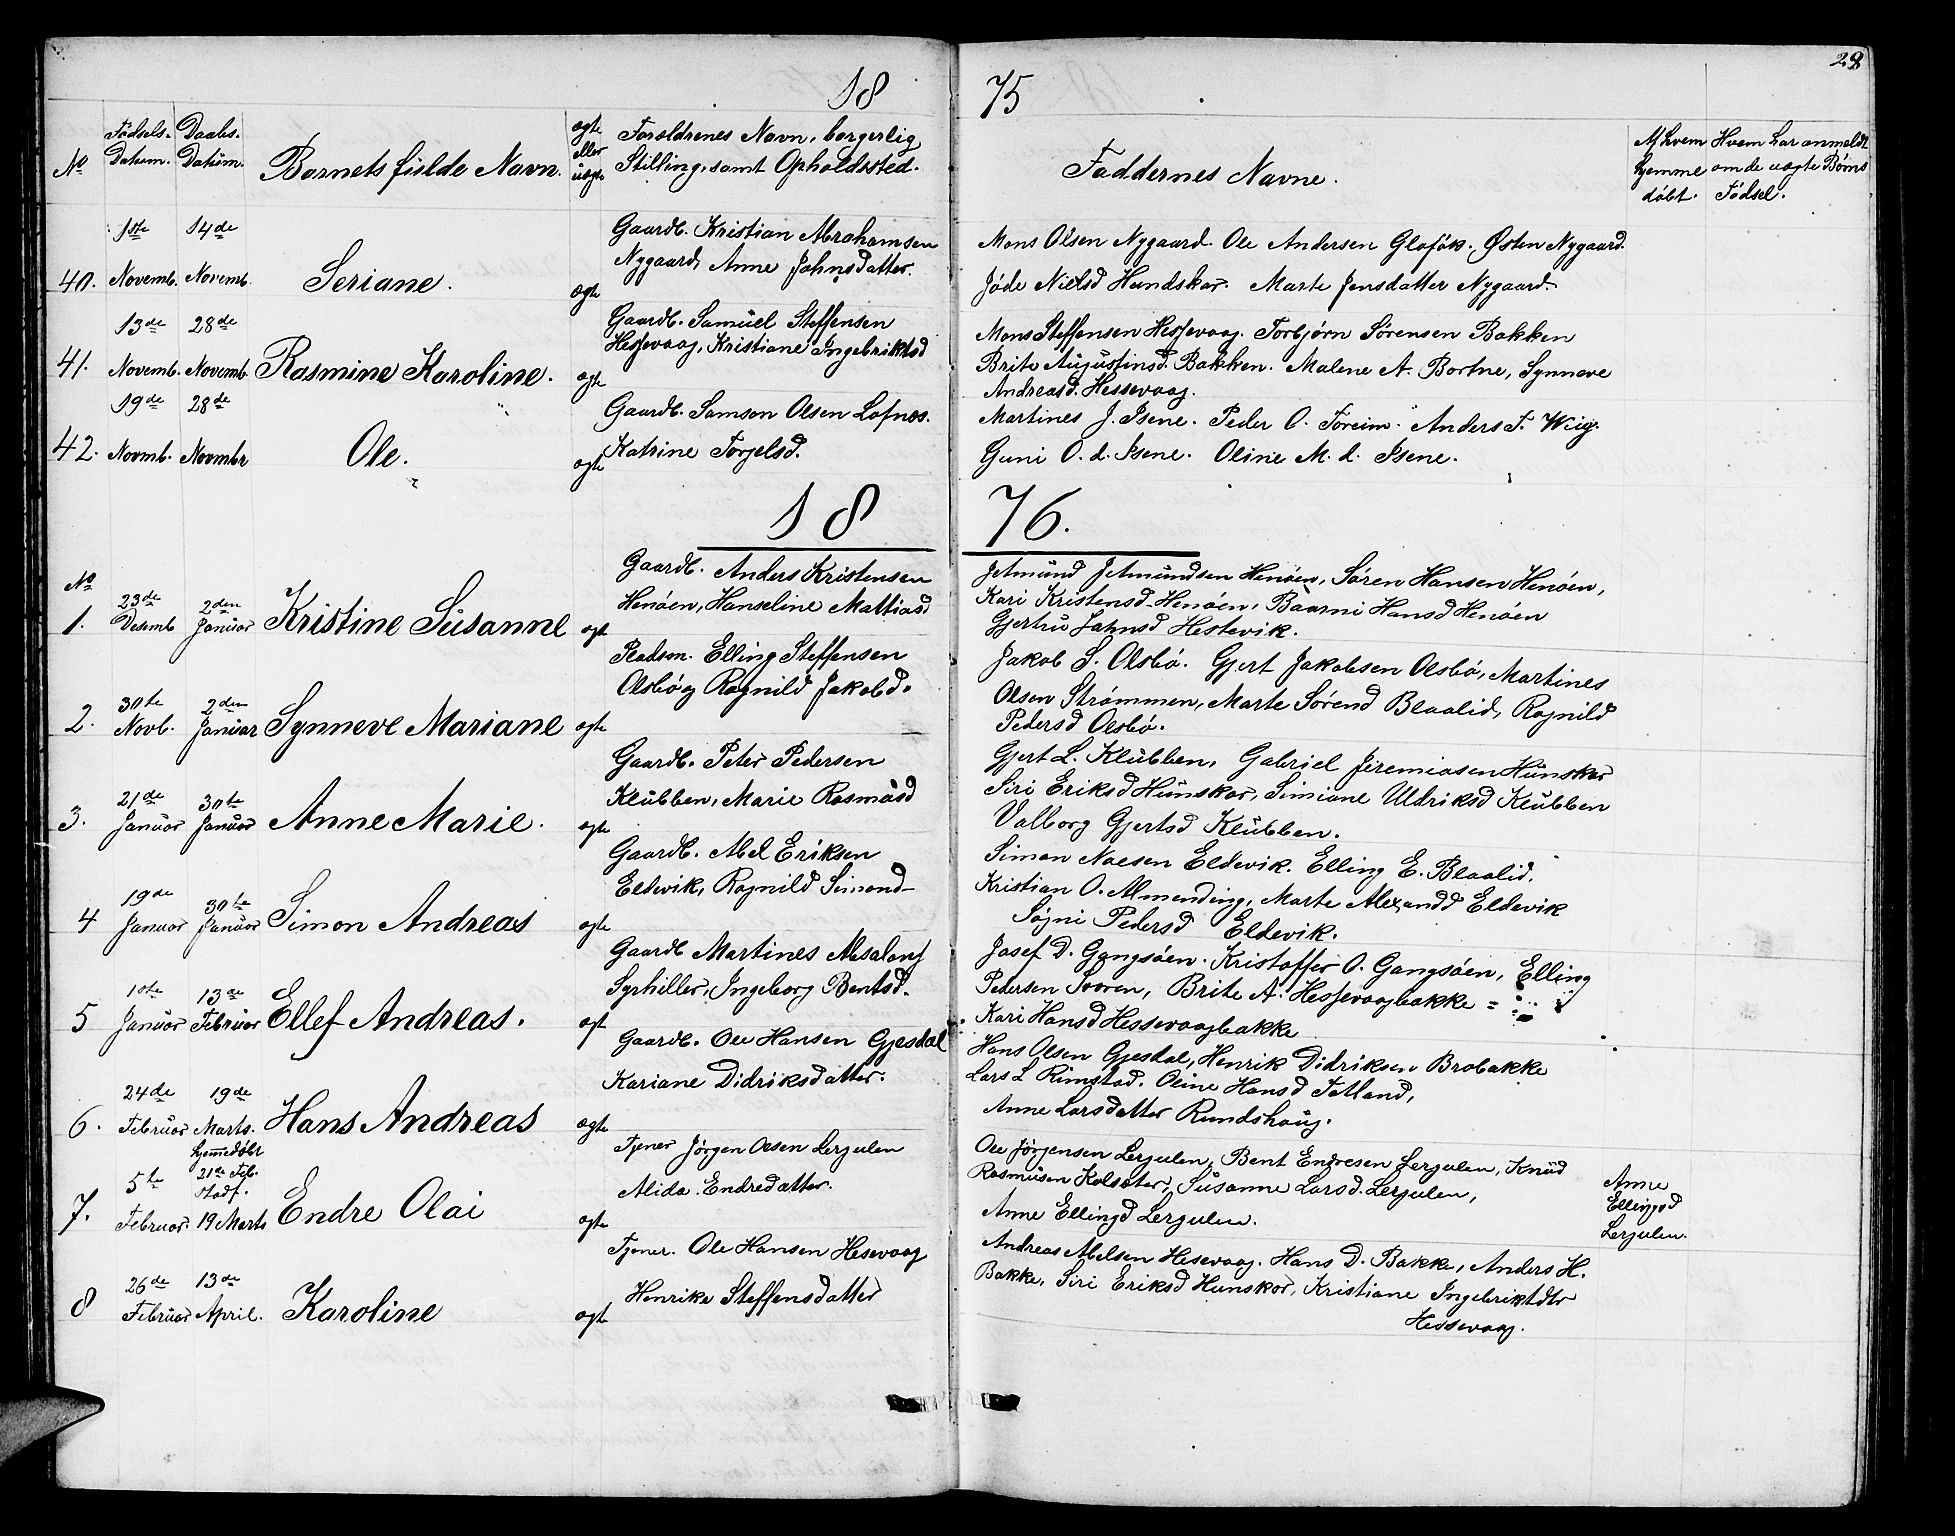 18 75
29
No
Fødsels-
Datum.
Daabs.
Datum.
Barnets fulde Navn.
ægte
eller
uægte
Forældrenes Navn, borgerlig
Stilling, samt Opholdssted.
Faddernes Navne.
Af hvem
hjemme
døbt.
Hvem har anmeldt
om de uægte Børns
Fødsel.
40.
1ste
Novemb.
14de
Novemb.
Seriane.
ægte
Gaardb. Kristian Abrahamsen
Nygaard, Anne Johnsdatter.
Mons Olsen Nygaard. Ole Andersen Glofök. Østen Nygaard.
Jöde Nielsd Hundskar. Marte Jensdatter Nygaard.
41.
13de
Novemb.
28de
Novemb
Rasmine Karoline.
ægte
Gaardb. Samuel Steffensen
Hessevaag, Kristiane Ingebriktsd
Mons Steffensen Hessevaag. Torbjørn Sørensen Bakken
Brite Augustinsd. Bakken. Malene A. Bortne, Synneve
Andreasd. Hessevaag.
42.
19de
Novmb.
28de
Novmbr
Ole.
ægte
Gaardb. Samson Olsen Lofnes.
Katrine Torjelsd.
Martines J. Isene. Peder O. Föreim. Anders T. Wiig.
Guni O. d. Isene. Oline M. d. Isene.
18 76.
No
1.
23de
Desemb
2den
Januar
Kristine Susanne
ægt
Gaardb. Anders Kristensen
Henøen, Hanseline Mattiasd
Jetmund Jetmundsen Henøen, Søren Hansen Henøen,
Kari Kristensd Henøen, Baarni Hansd Henøen
Gjertru Jahnsd Hestevik.
2.
30te
Novb.
2den
Januar
Synneve Mariane
ægte
Pladsm. Elling Steffensen
Olsbø og Ragnild Jakobd.
Jakob S. Olsbö. Gjert Jakobsen Olsbö, Martines
Olsen Strømmen, Marte Sørend Blaalid, Ragnild
Pedersd Olsbö.
3.
21de
Januar
30te
Januar
Anne Marie.
ægte
Gaardb. Peter Pedersen
Klubben, Marie Rasmusd
Gjert L. Klubben, Gabriel Jeremiasen Hunskar
Siri Eriksd Hunskar, Simiane Uldriksd Klubben
Valborg Gjertsd Klubben.
4
19de
Januar
30te
Januar
Simon Andreas
ægte
Gaardb. Abel Eriksen
Eldevik, Ragnild Simond
Simon Noesen Eldevik. Elling E. Blaalid.
Kristian O. Almending, Marte Alexandd Eldevik
Søgni Pedersd Eldevik.
5
10te
Januar
13de
Februar
Ellef Andreas.
ægt
Gaardb Martines Absalons
Syrhiller, Ingeborg Bentsd.
Josef D. Gangsöen. Kristoffer O. Gangsöen, Elling
Pedersen Svoren, Brite A. Hessevaagbakke
Kari Hansd Hessevaagbakke
6.
24de
Februar
19de
Marts.
Hans Andreas
ægte
Gaardb. Ole Hansen Gjesdal
Kariane Didriksdatter.
Hans Olsen Gjesdal, Henrik Didriksen Brobakke
Lars L Rimstad. Oline Hansd Tetland,
Anne Larsdatter Rundshoug.
7.
5te
Februar.
hjemmedøbt
21de Feb.
stadf.
19 Marts
Endre Olai
ægte
Tjener Jörgen Olsen Lergulen
Alida Endredatter.
Ole Jörgensen Lergulen, Bent Endresen Lergulen, Knud
Rasmusen Kolsæter, Susanne Larsd. Lergulen,
Anne Ellingd Lergulen.
Anne
Ellingsd
Lergulen.
8
26de
Februar
13de
April.
Karoline
ægte
Tjener. Ole Hansen Hesevaag
Henrike Steffensdatter
Andreas Abelsen Hesevaag. Hans D. Bakke, Anders H.
Bakke. Siri Eriksd Hunskor, Kristiane Ingebriktdtr
Hessevaag.